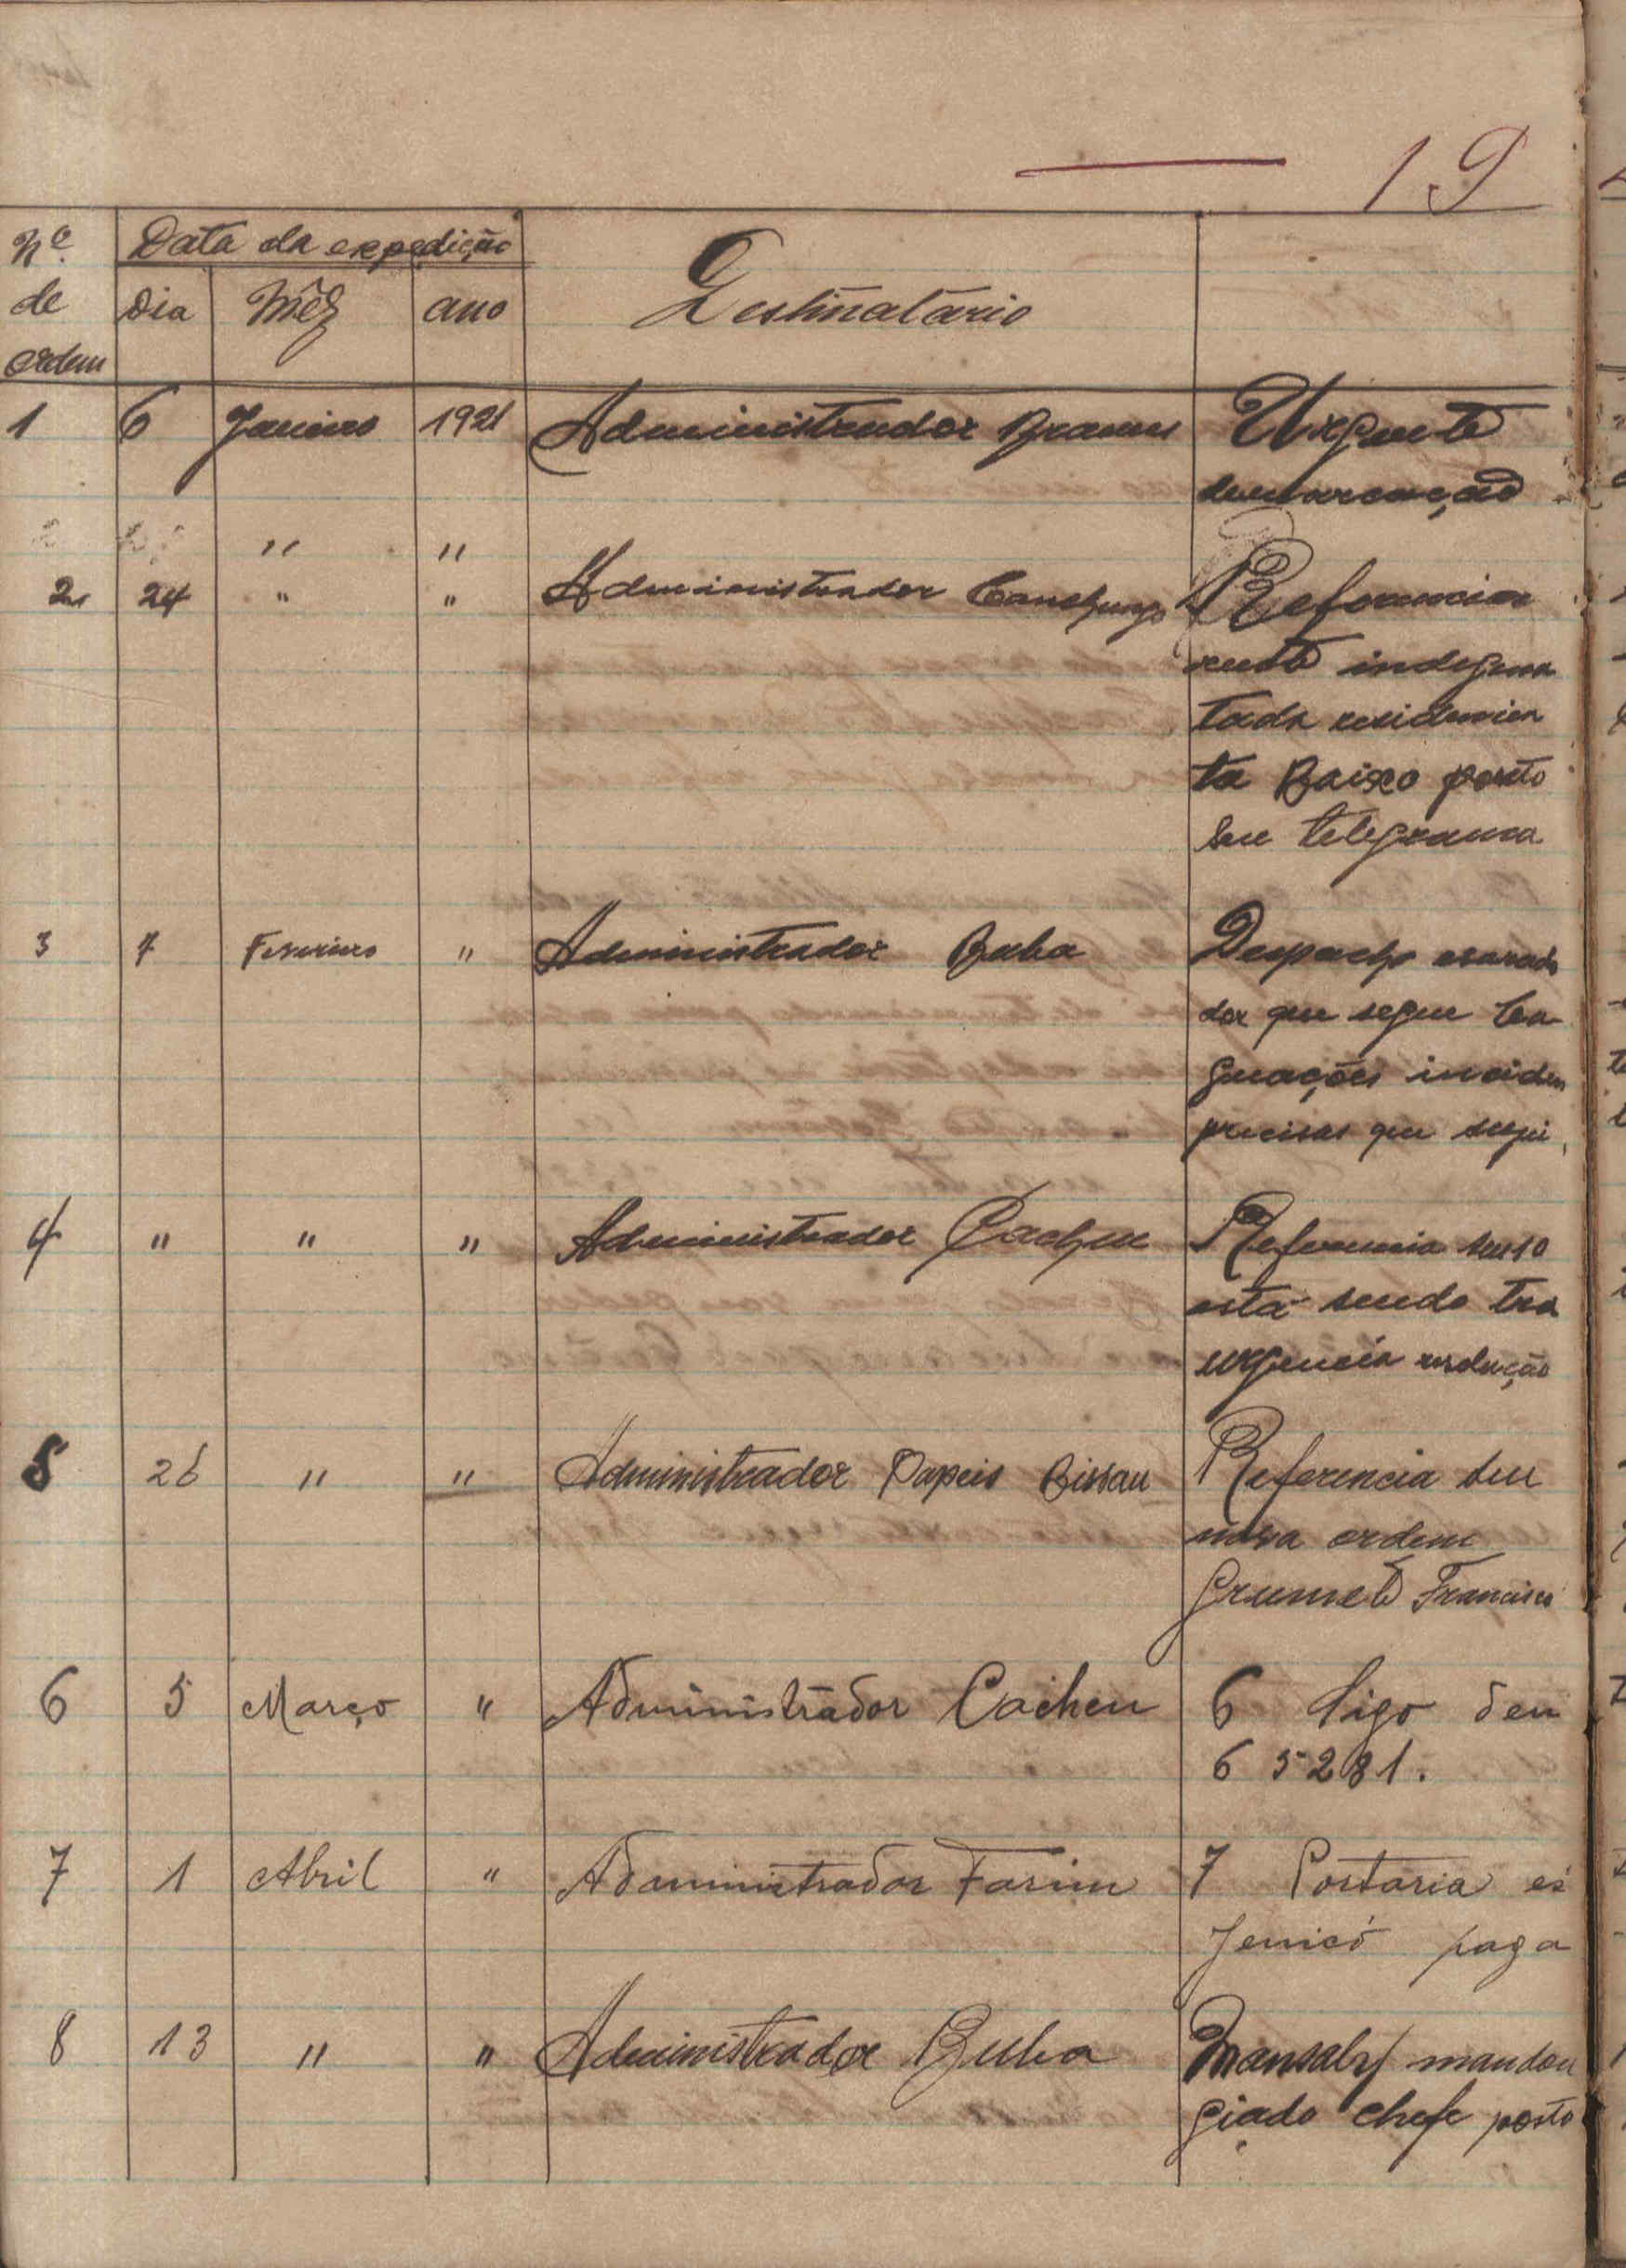 19
Nº Data da expedição
de Dia Mêz ano Destinatário
ordem
1 6 Janeiro 1921 Administrador Brames Urgente
demarcação
" "
2 24 " " Administrador Canchungo Referencia
indigena
tada residencia
ta Baixo porto
seu telegrama
3 7 Fevereiro " Administrador Buba Despacho
dor que segue
guações
precisas que segui
4 " " " Administrador Cacheu Referencia
está sendo tra
urgencia resolução
5 26 " " Administrador Papeis Bissau Referencia seu
nova ordem
Grumete Francisco
6 5 Março " Administrador Cacheu 6 Sigo
6 5281.
7 1 Abril " Administrador Farim 7 Portaria es
paga
8 13 " " Administrador Buba mandou
giado chefe posto